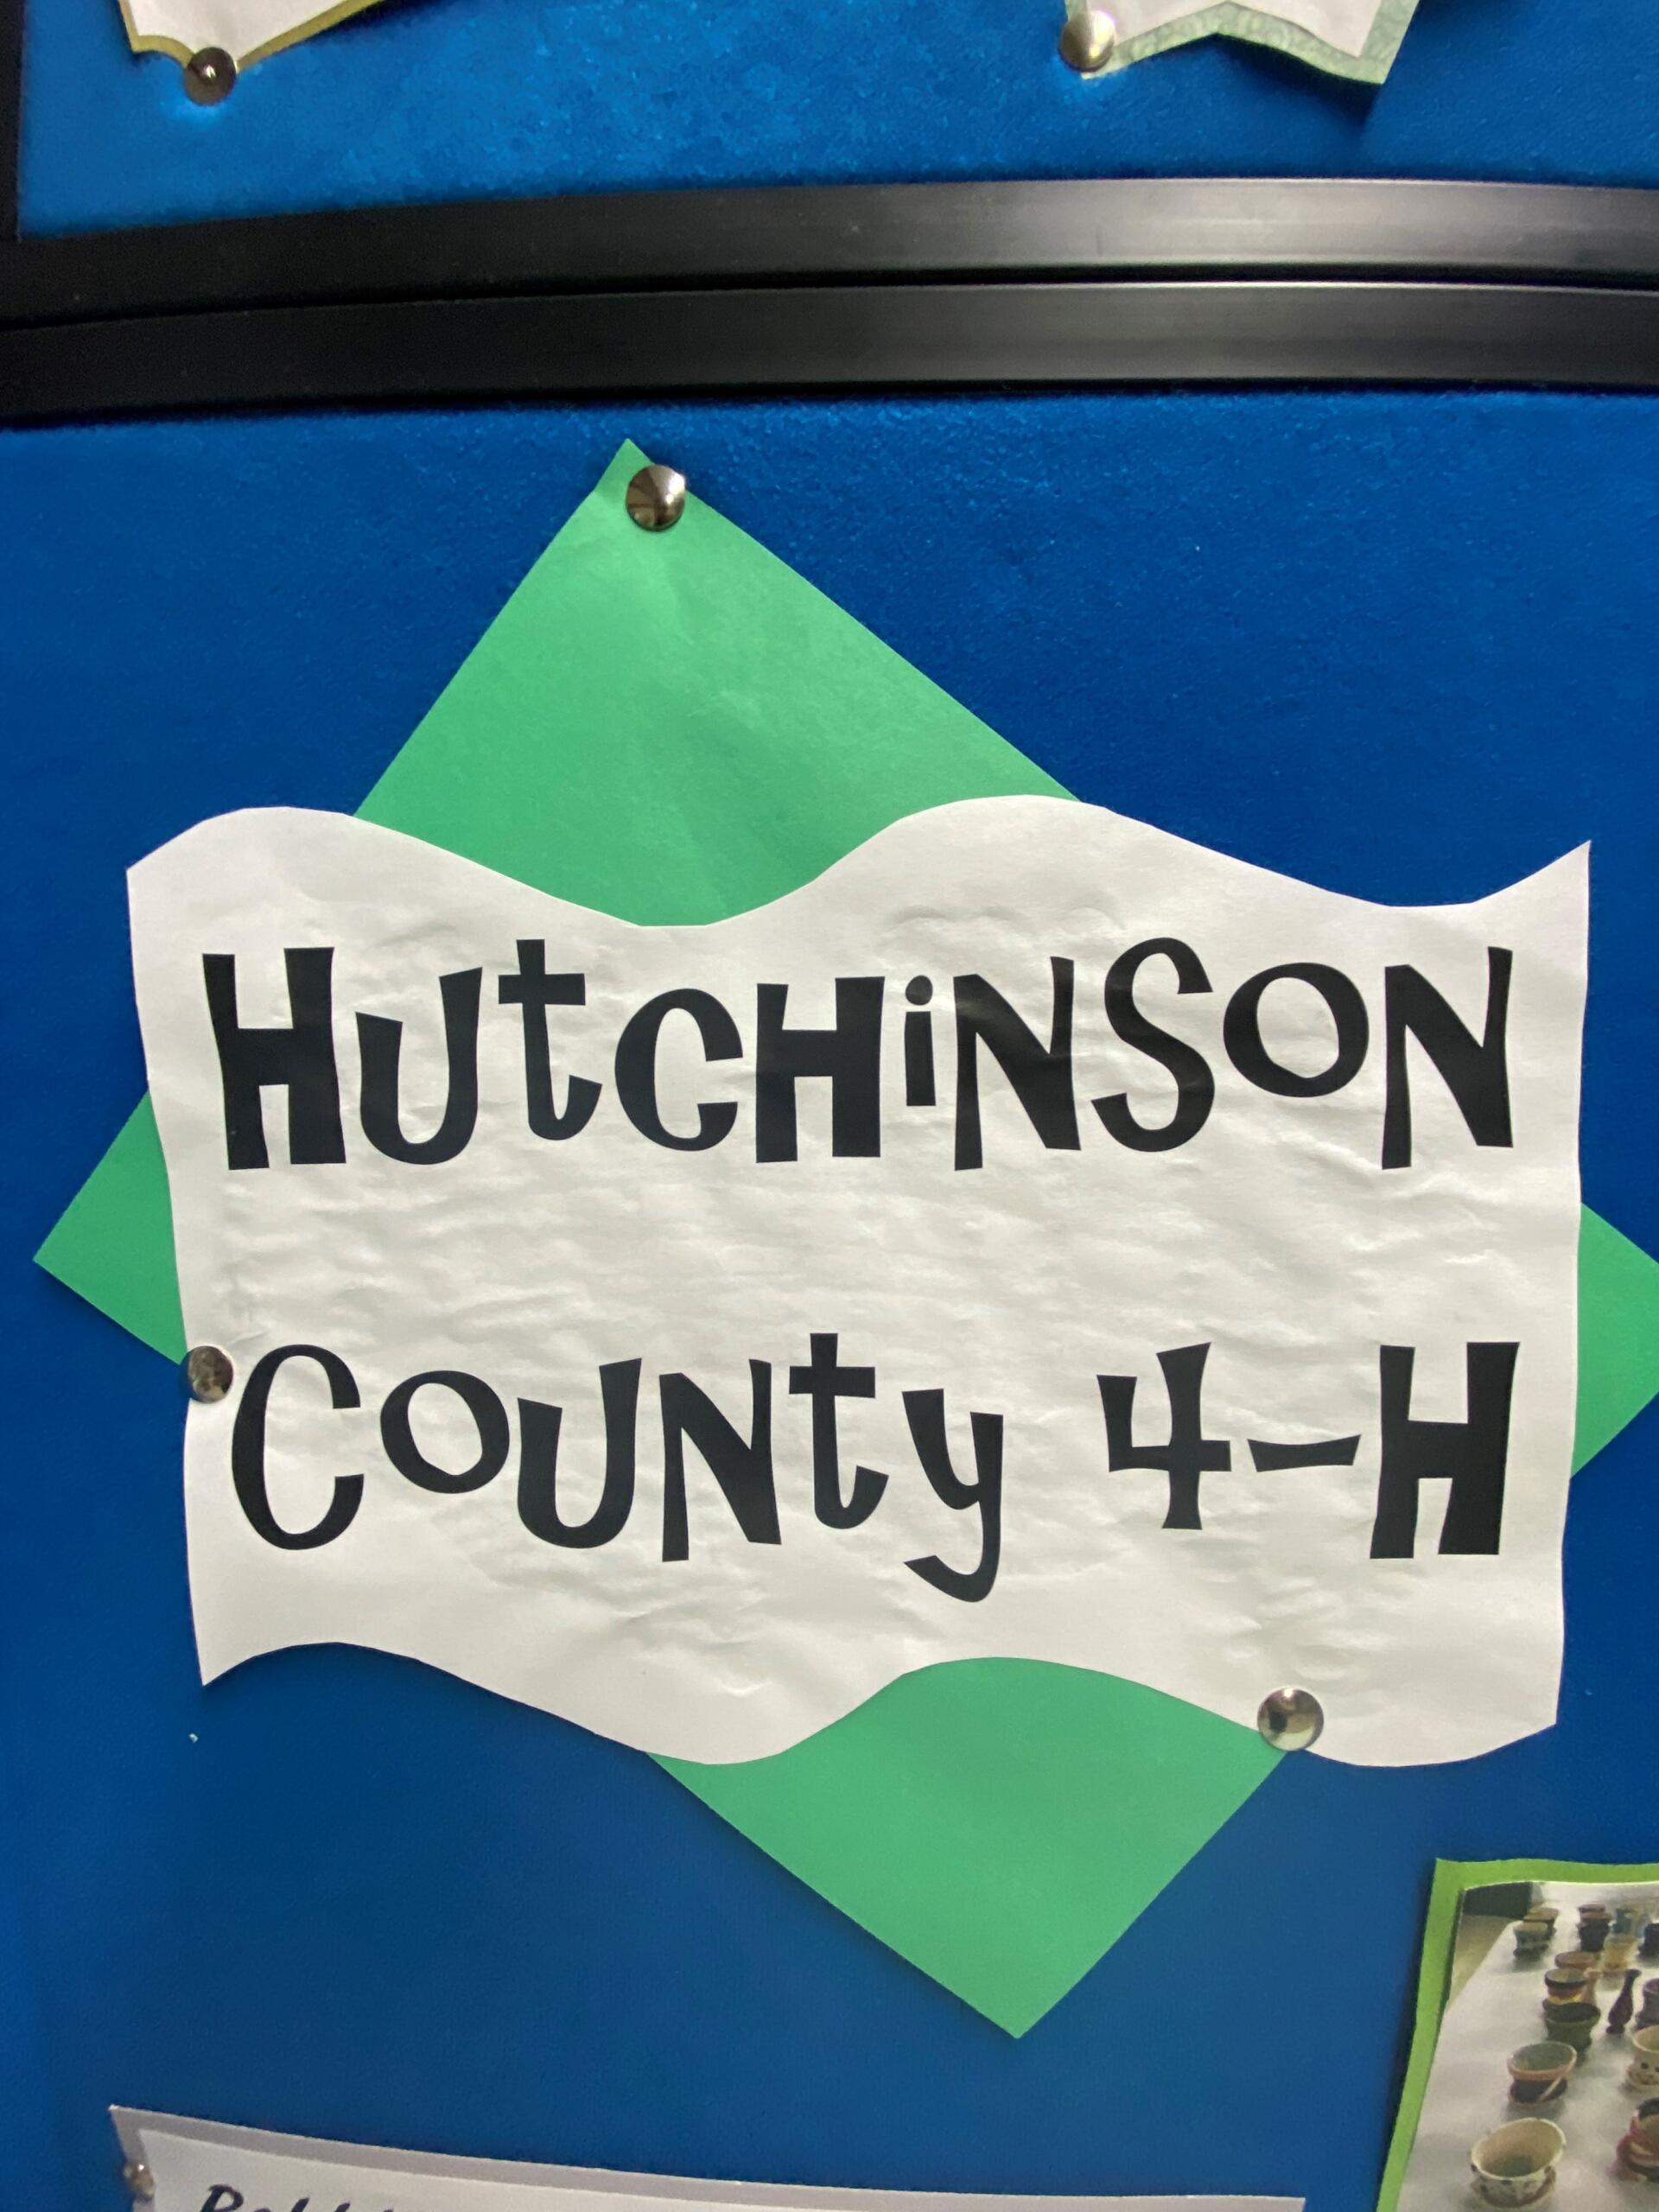 HUtCHiNSON
COUNty 4-H